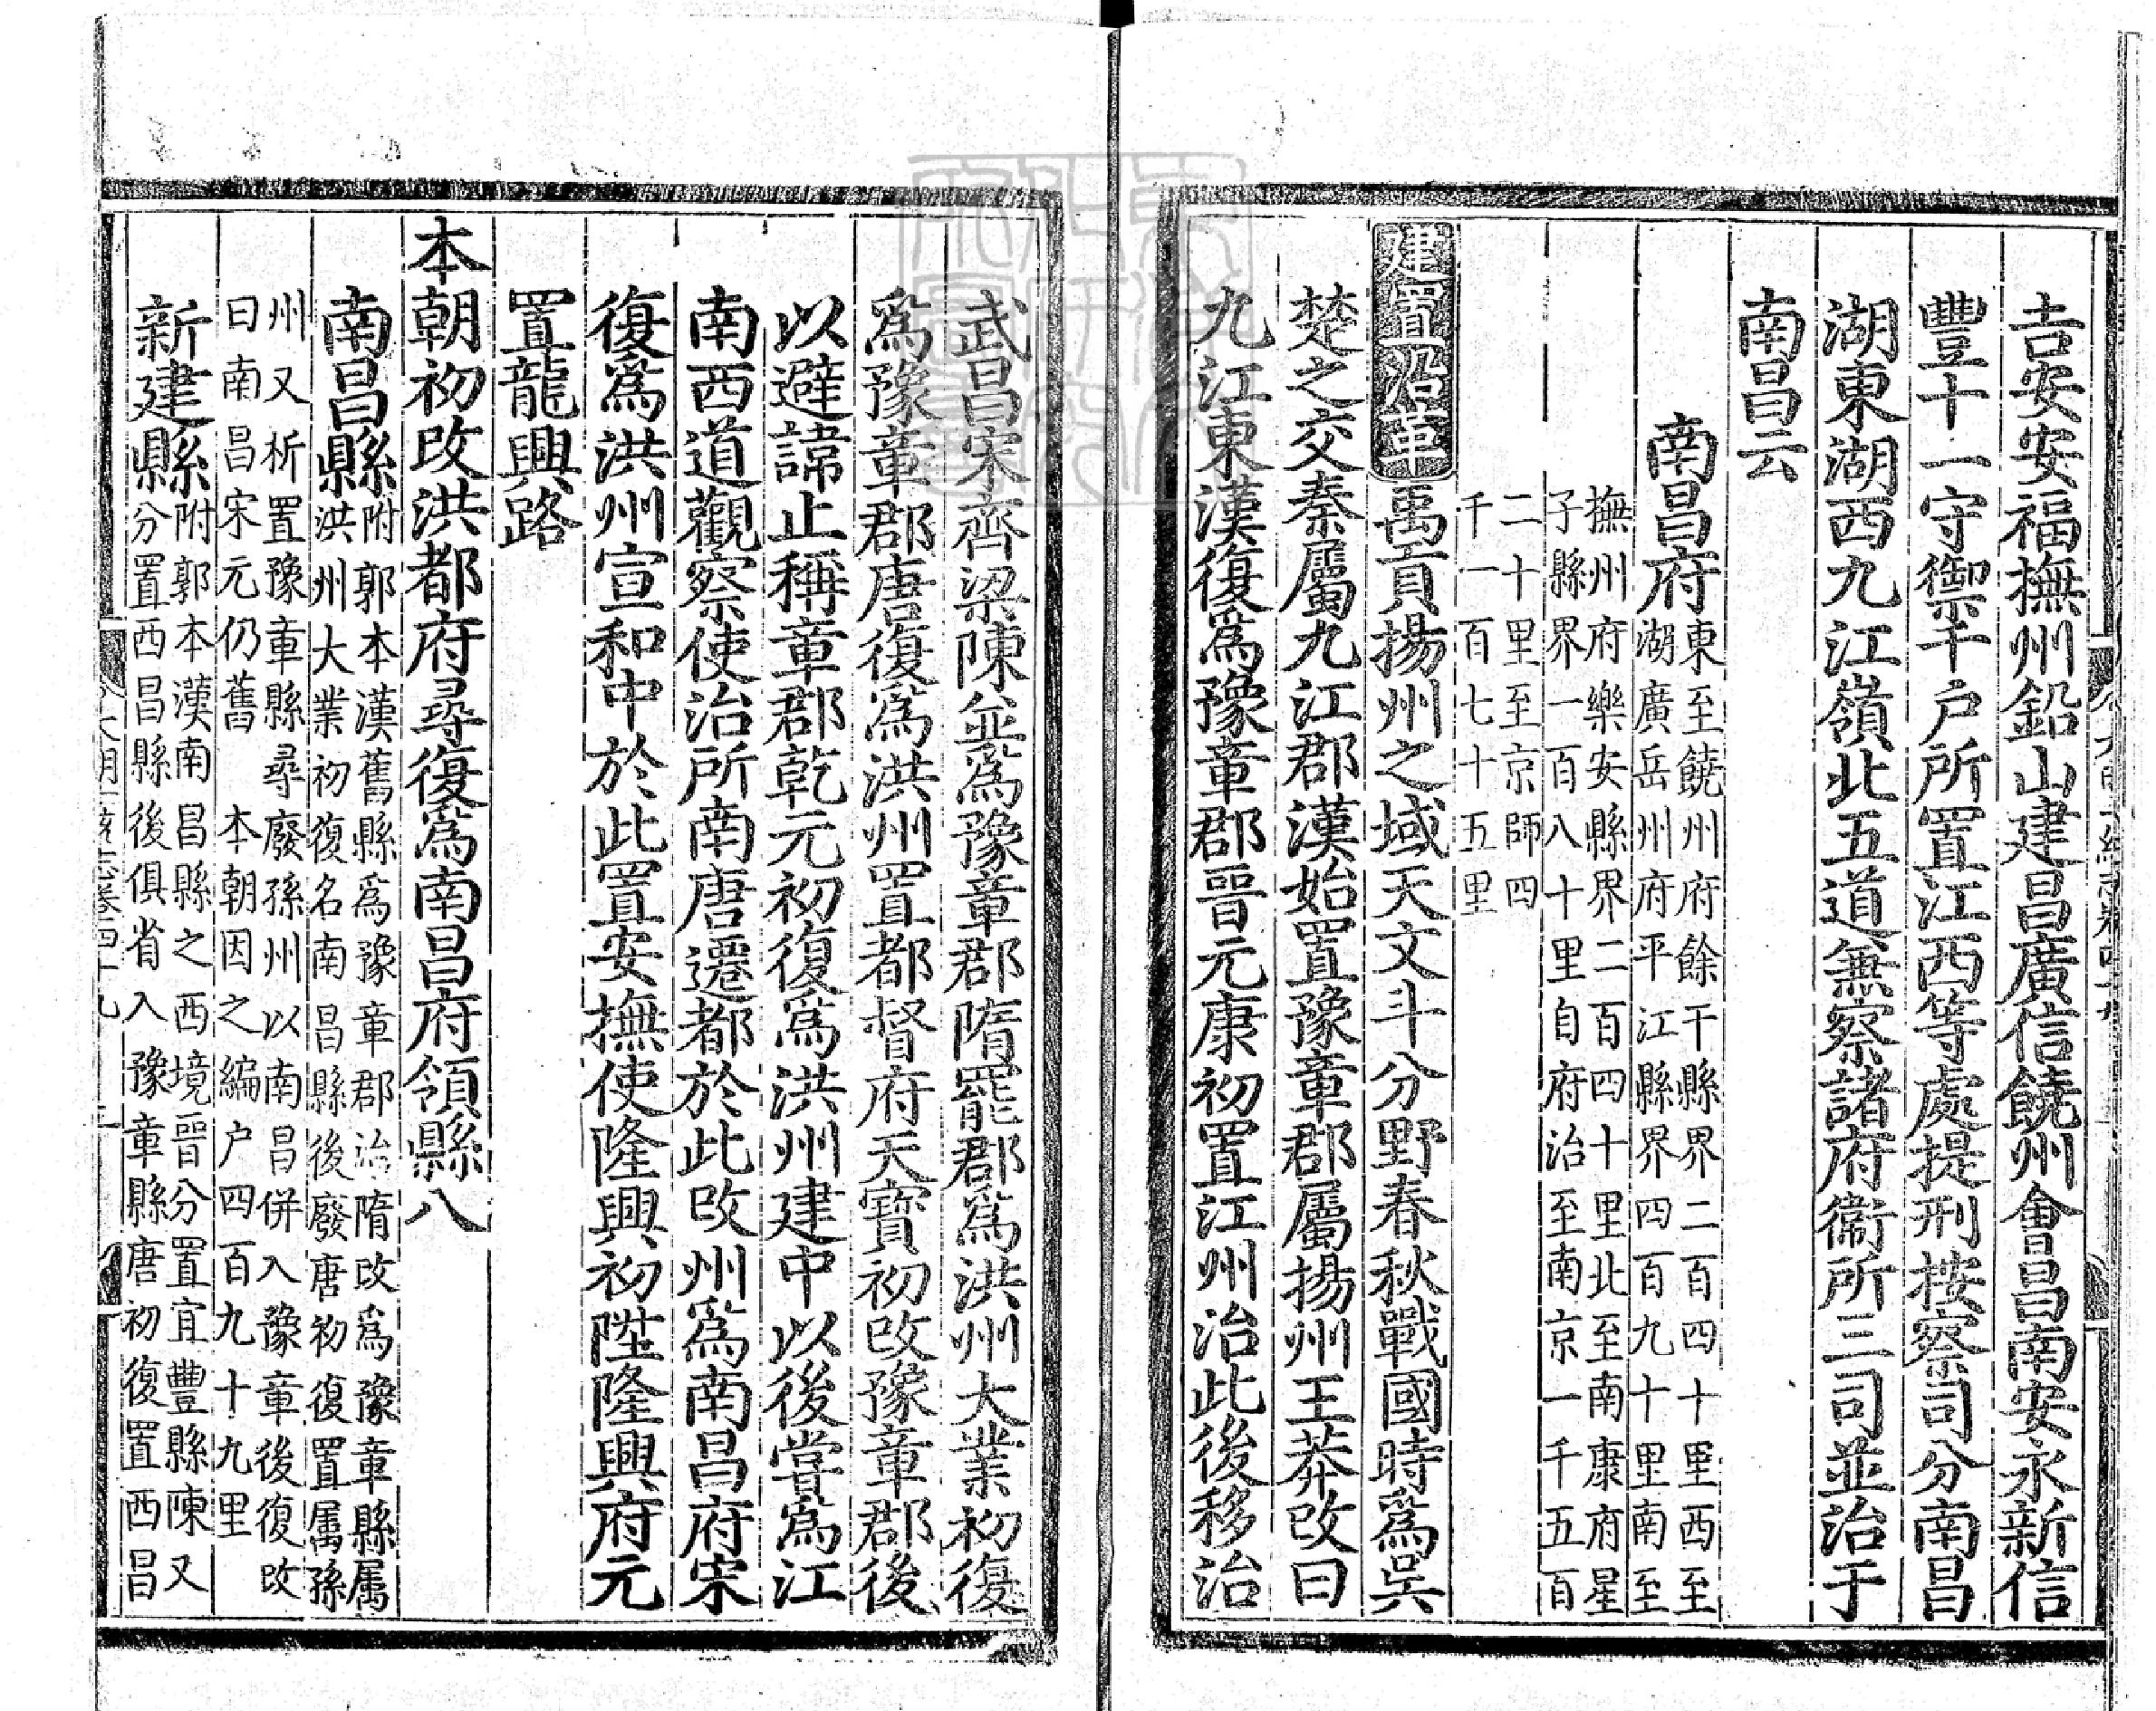 吉安安福撫州鉛山建昌廣信饒州會昌南安永新信
豐十一守禦千戶所置江西等處提刑按察司分南昌
湖東湖西九江嶺北五道無察諸府衛所三司並治于
南昌云
南昌府
東至饒州府餘干縣界二百四十里西至
湖廣岳州府平江縣界四百九十里南至
撫州府樂安縣界二百四十里北至南康府星
子縣界一百八十里自府治至南京一千五百
二十里至京師四
千一百七十五里
建置沿革
禹貢揚州之域天文斗分野春秋戰國時爲吳
楚之交秦屬九江郡漢始置豫章郡屬揚州王莽改曰
九江東漢復爲豫章郡晉元康初置江州治此後移治
武昌宋齊梁陳並爲豫章郡隋罷郡爲洪州大業初復
爲豫章郡唐復爲洪州置都督府天寶初改豫章郡後
以避諱止稱章郡乾元初復爲洪州建中以後嘗爲江
南西道觀察使治所南唐遷都於此改州爲南昌府宋
復爲洪州宣和中於此置安撫使隆興初陞隆興府元
置龍興路
本朝初改洪都府尋復爲南昌府領縣八
南昌縣
附郭本漢舊縣爲豫章郡治隋改爲豫章縣屬
洪州大業初復名南昌縣後廢唐初復置屬孫
州又析置豫章縣尋廢孫州以南昌併入豫章後復改
曰南昌宋元仍舊 本朝因之編户四百九十九里
新建縣
附郭本漢南昌縣之西境晉分置宜豐縣陳又
分置西昌縣後俱省入豫章縣唐初復置西昌